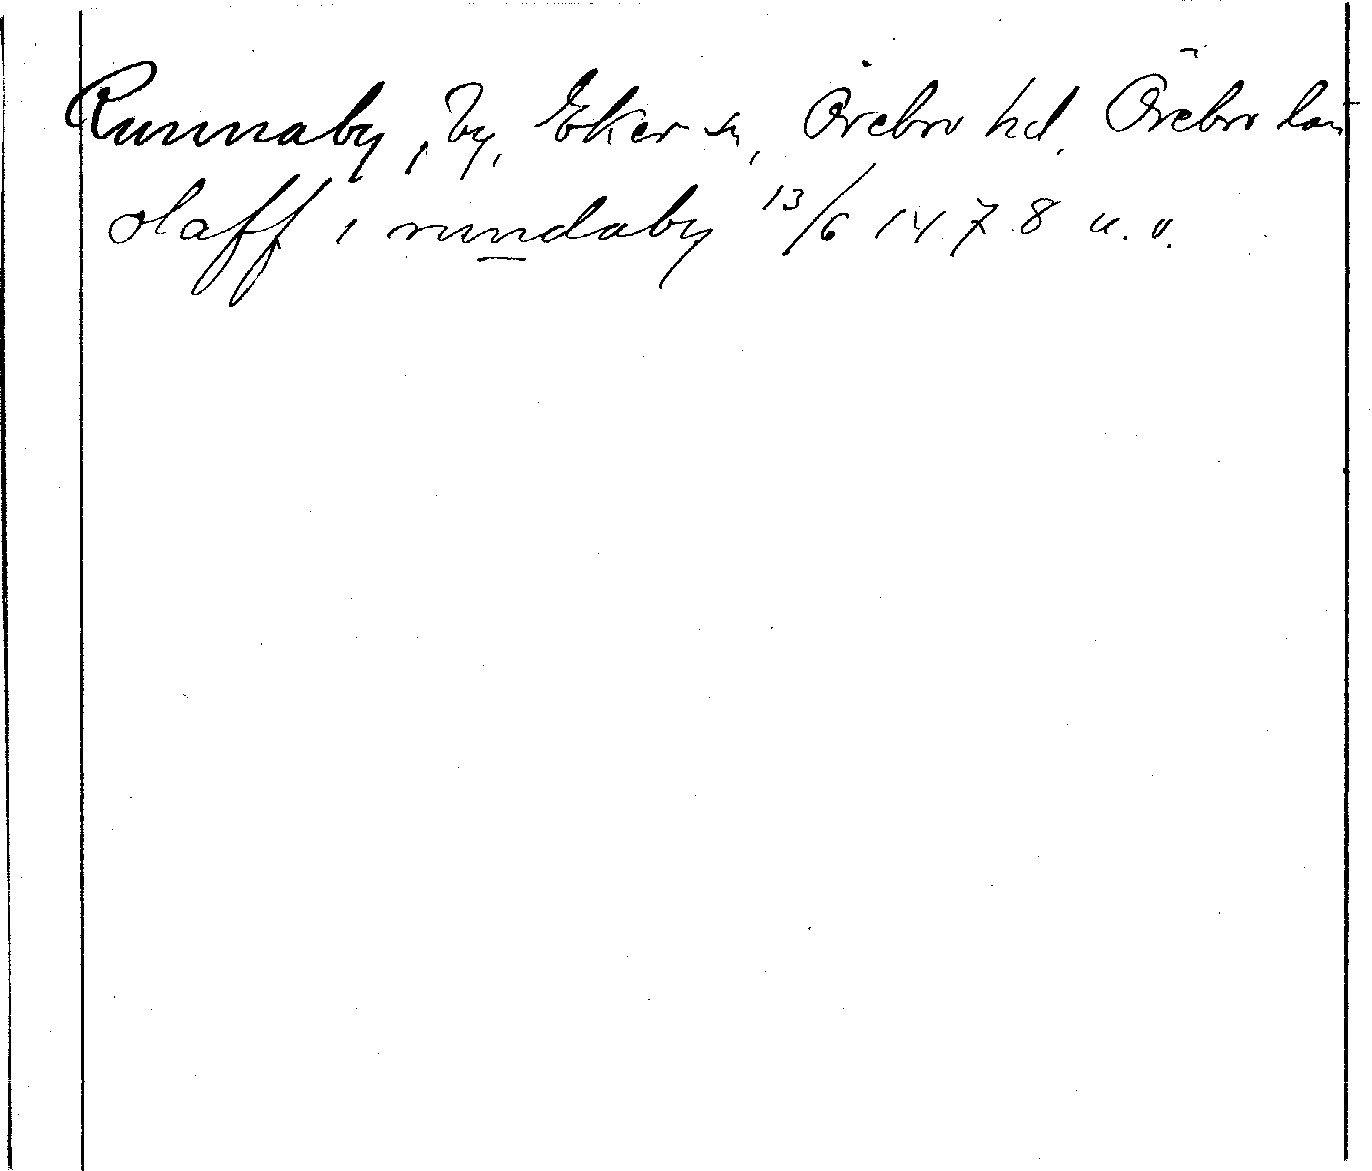 Runnaby, by, Eker sn, Örebro hd, Örebro län
olaff i rundaby 13/6 1478 u.o.